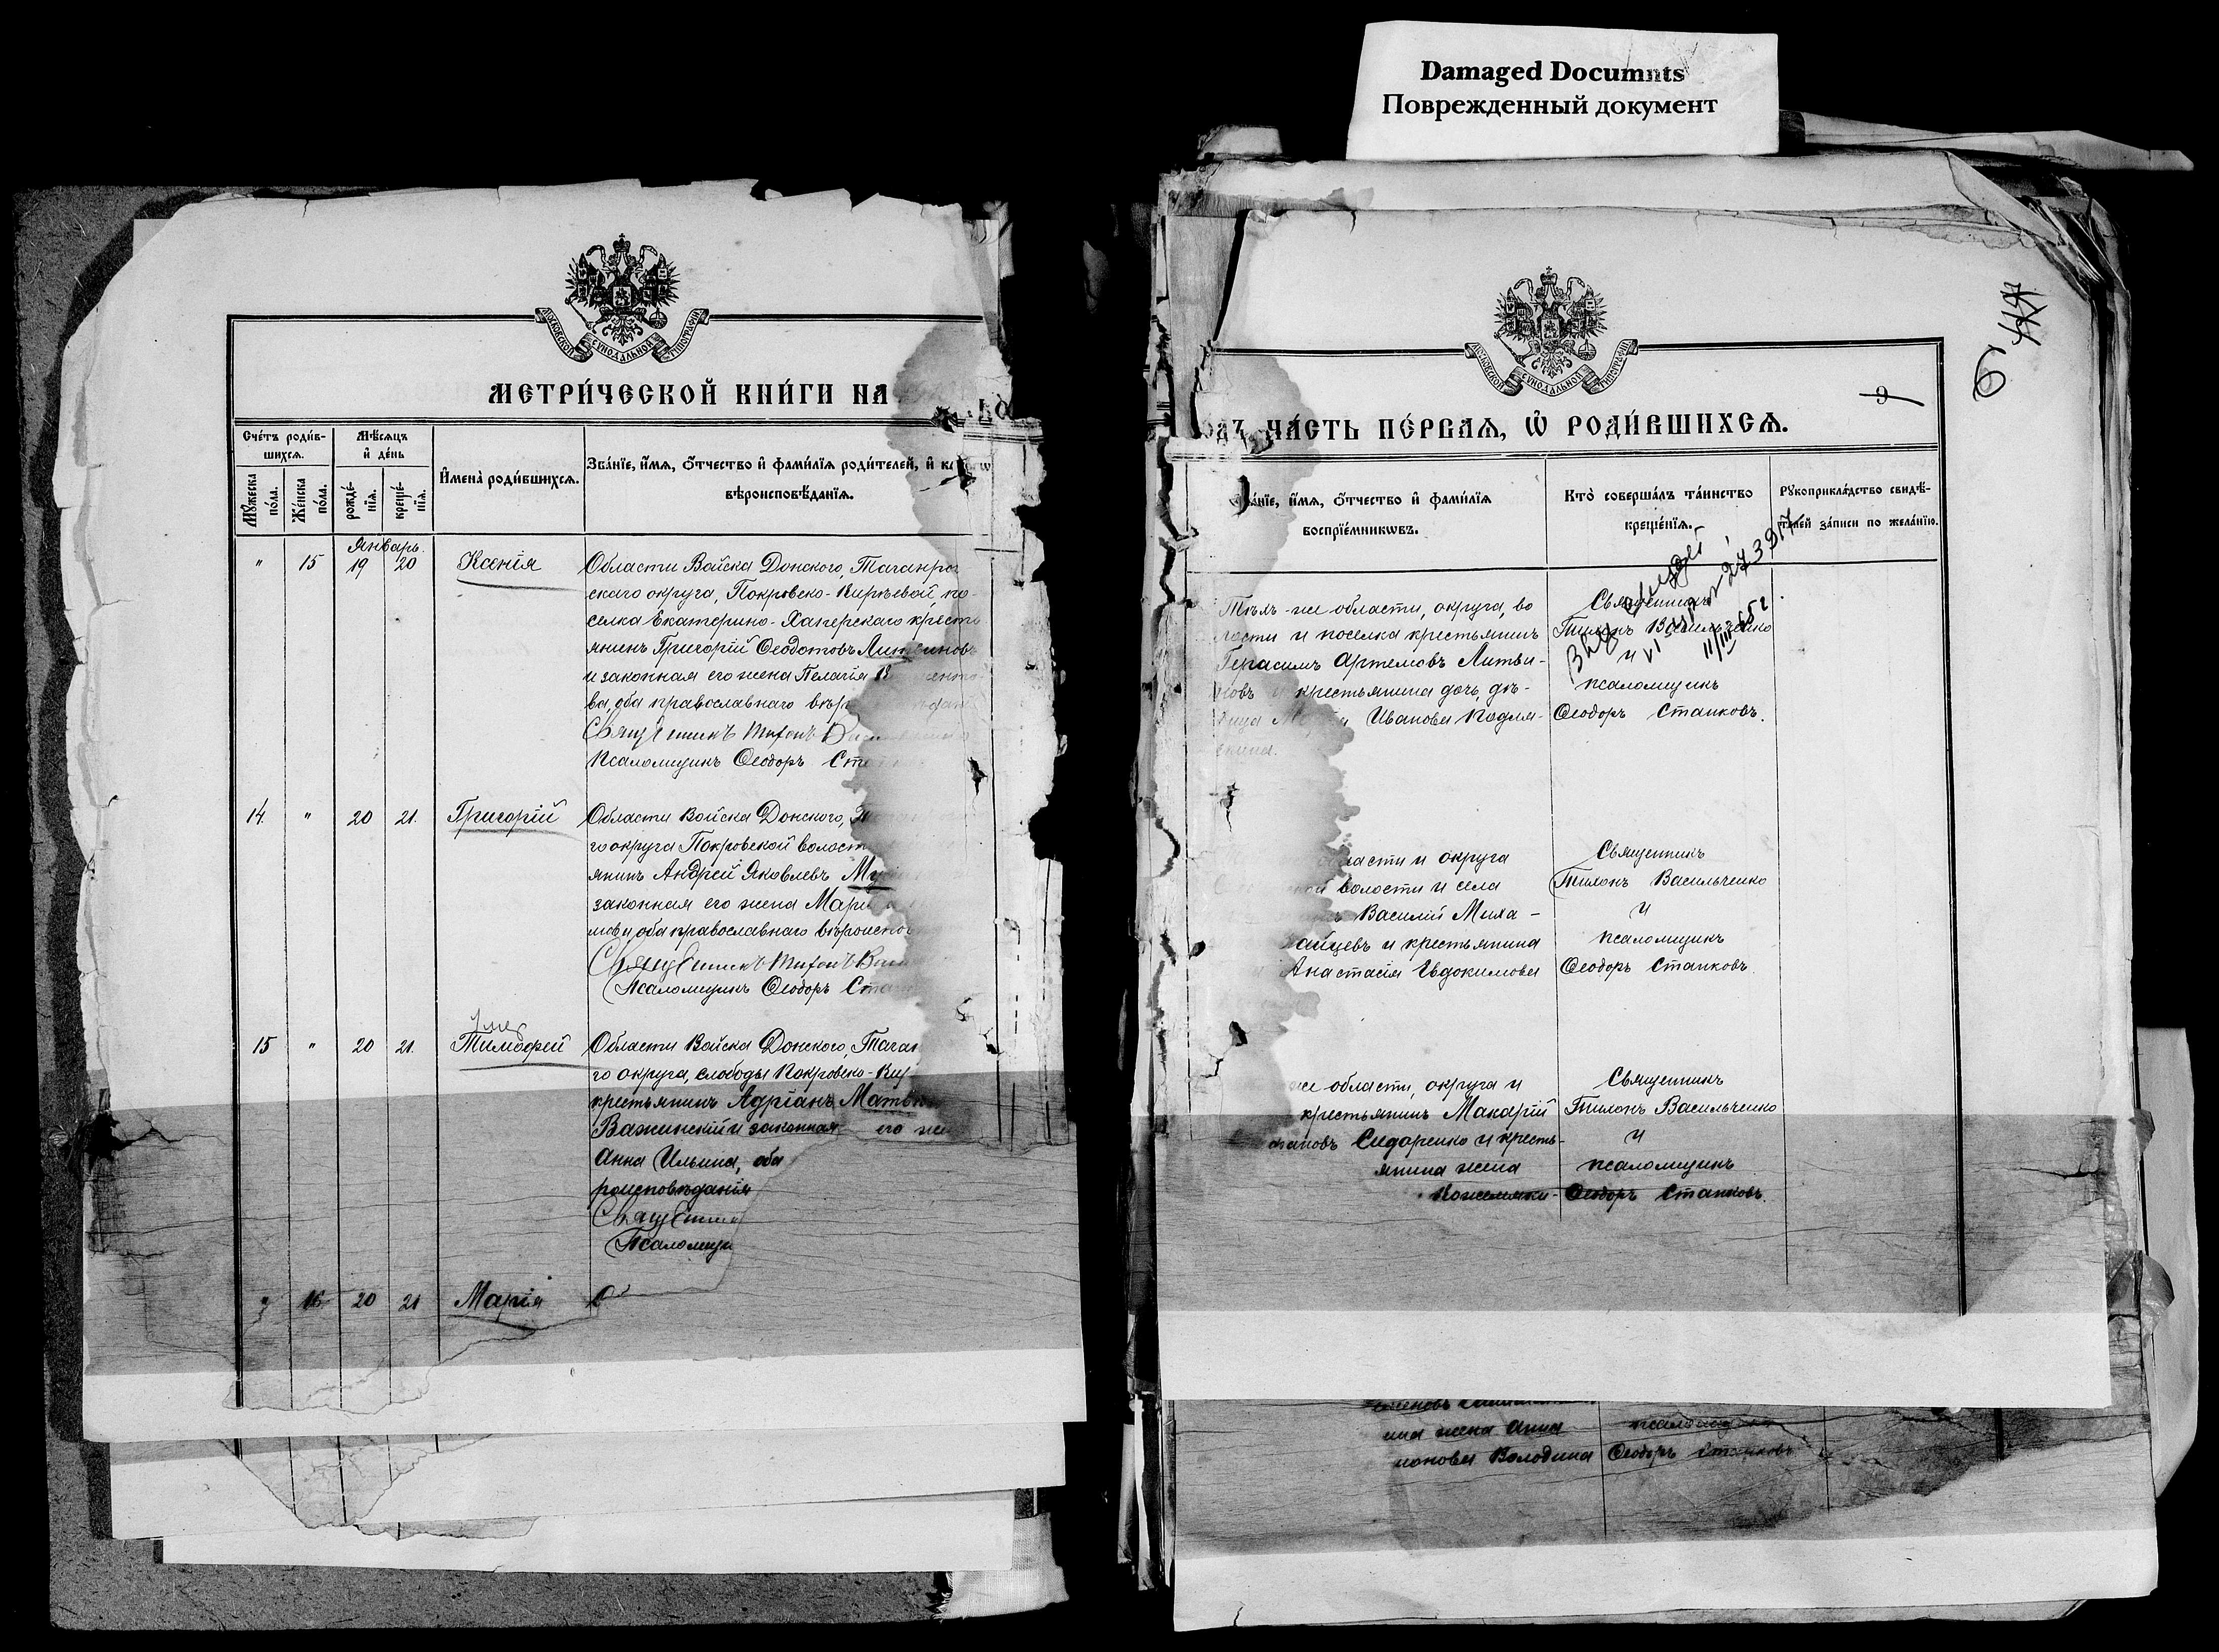 Damaged Documnts
Поврежденный документ
МОСКОВСКОЙ СѴНОДАЛЬНОЙ ТИПОГРАФІИ
МЕТРИ́ЧЕСКОЙ КНИ́ГИ НА
Сче́тъ роди́в-
шихсѧ.
Мѣ́сѧцъ
и҆ де́нь
Мꙋ́жеска по́ла.
Же́нска по́ла.
рожде́-
нїѧ.
креще́-
нїѧ.
И҆мена̀ роди́вшихсѧ.
Зва́нїе, и҆́мѧ, ѻ҆́тчество и҆ фами́лїѧ роди́телей, и҆
вѣроисповѣ́данїѧ.
Январь.
" 15 19 20 Ксенія
Области Войска Донского, Таганрог
скаго округа, Покровско-Кирѣевой, по
селка Екатерино-Хаперскаго кресть
янинъ Григорій Ѳеодотовъ Литвиновъ
и законная его жена Пелагія
ва, оба православнаго вѣро
Священникъ Тихонъ Васильченко
Псаломщикъ Ѳеодоръ Ста
14. " 20 21. Григорій
Области Войска Донского,
го округа Покровской волост
янинъ Андрей Яковлевъ
законная его жена Марі
мова, оба православнаго вѣроиспов
Священникъ Тихонъ Васи
Псаломщикъ Ѳеодоръ Ста
Умер
15 " 20 21. Тимоѳей
Области Войска Донского, Таган
го округа, слободы Покровско-Кир
крестьянинъ Адріанъ Матвѣ
Важинскій и законная его же
Анна Ильина, оба
роисповѣданія
Священни
Псаломщи
" 16 20 21 Марія О
МОСКОВСКОЙ СѴНОДАЛЬНОЙ ТИПОГРАФІИ
6
9
ЧА́СТЬ ПЕ́РВАЯ, Ѡ҆ РОДИ́ВШИХСѦ.
а́нїе, и҆́мѧ, ѻ҆́тчество и҆ фами́лїѧ
воспрїе́мникѡвъ.
Кто̀ соверша́лъ та́инство
креще́нїѧ.
Рꙋкоприкла́дство свидѣ́-
телей за́писи по жела́нїю.
Тѣхъ-же области, округа, во
лости и поселка крестьянинъ
Герасимъ Артемовъ Литви-
новъ и крестьянина дочь, дѣ-
вица Ивановна Кодля-
Священникъ
Тихонъ Васильченко
и
псаломщикъ
Ѳеодоръ Станковъ.
273917
11/III 65 г
области и округа
волости и села
Василій Миха-
айцевъ и крестьянина
Анастасія Евдокимова
Священникъ
Тихонъ Васильченко
и
псаломщикъ
Ѳеодоръ Станковъ.
же области, округа и
крестьянинъ Макарій
ановъ Сидоренко и кресть-
янина жена
Кожемяки-
Священникъ
Тихонъ Васильченко
и
псаломщикъ
Ѳеодоръ Станковъ.
ина жена Анна
нонова Володина
псаломщикъ
Ѳеодоръ Станковъ